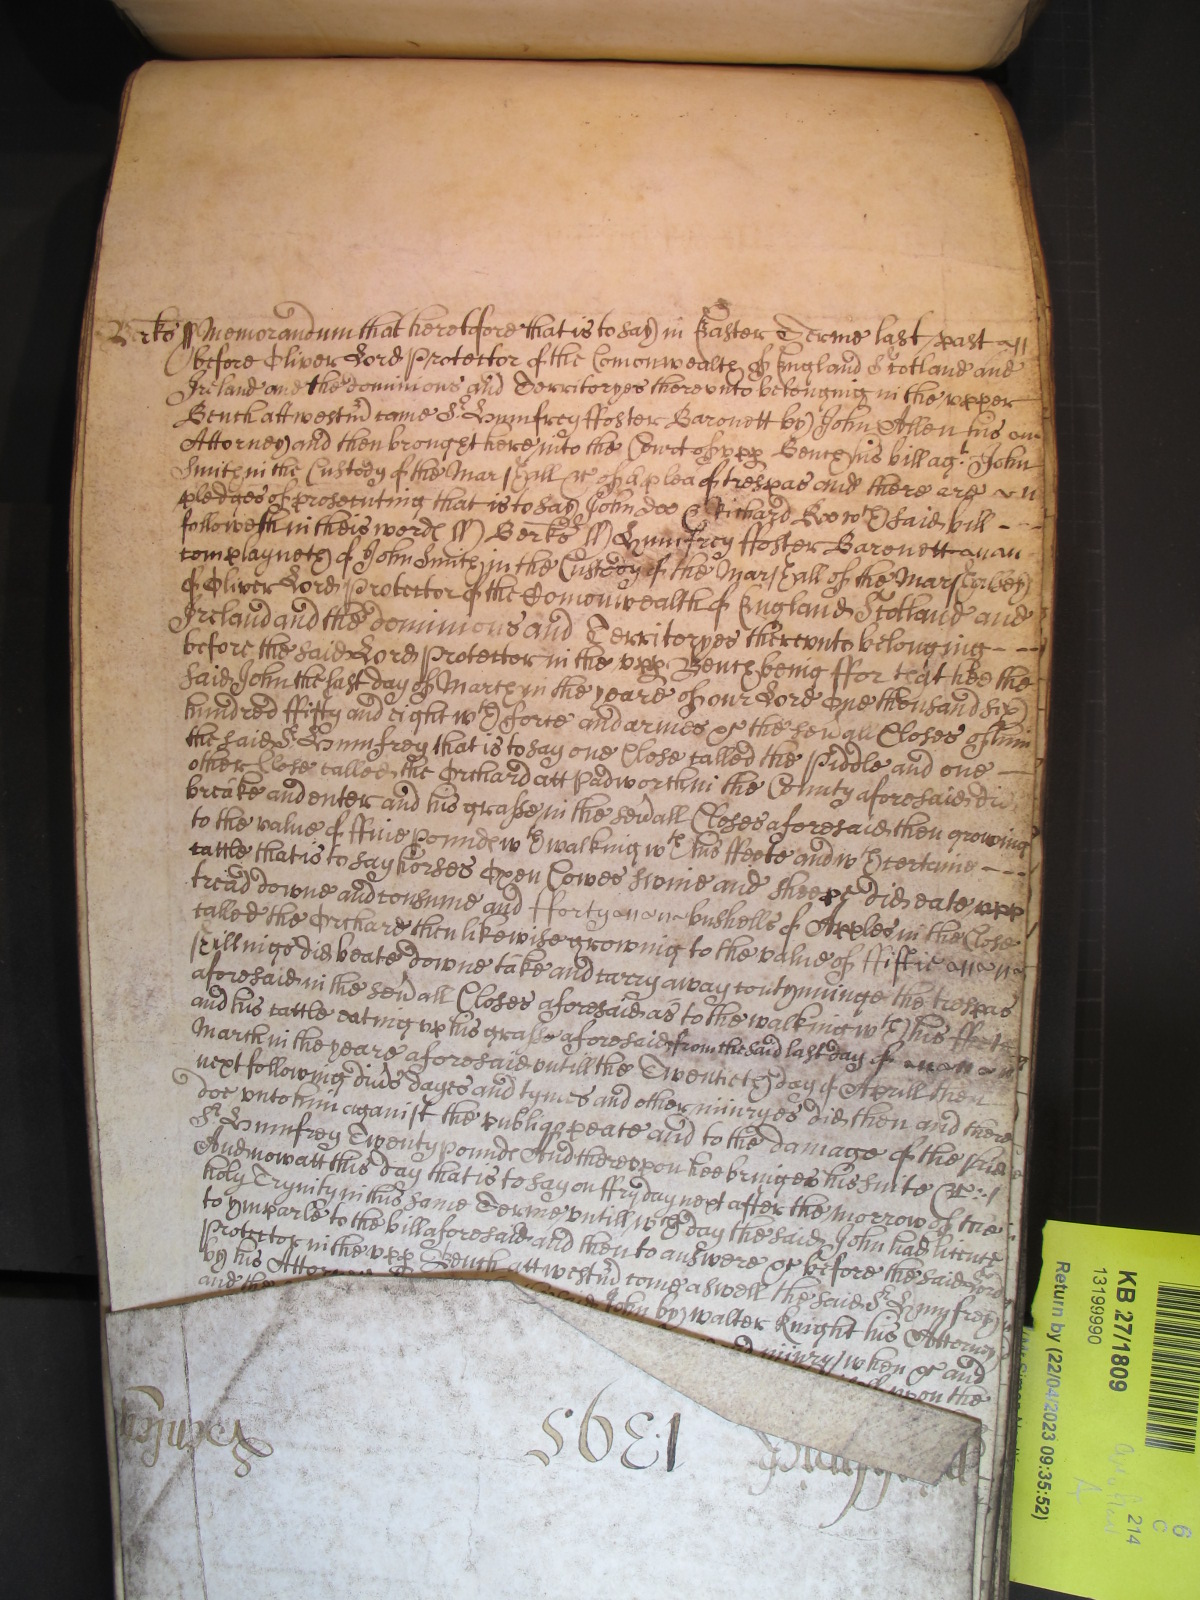 Berks ss Memorandum that heretofore that is to say in Easter Terme last past
before Oliver Lord Protector of the Comonwealth of England Scotland and
Ireland and the dominions and Territoryes thereunto belonging in the upper
Bench att westm came Sr Humfrey ffoster Baronett by John Allen his
Attorney and then brought here into the Court of upp Bench his bill agt John
Smith in the Custody of the Marshall &c of a plea of trespas and there are
pledges of prosecuting that is to say John doo & Richard Roo wch said bill
followeth in theis words ss Berks ss Humfrey ffoster Baronett
complayneth of John Smith in the Custody of the Marshall of the Marshalsey
of Oliver Lord Protector of the Comonwealth of England Scotland and
Ireland and the dominions and Territoryes thereunto belonging
before the said Lord Protector in the upp Bench being ffor that hee the
said John the last day of March in the yeare of our Lord One thousand six
hundred ffifty and eight wth force and armes &c the sevall Closes of him
the said Sr Humfrey that is to say one Close called the Piddle and one
other Close called the Orchard att Padworth in the County aforesaid did
breake and enter and his grasse in the sevall Closes aforesaid then growing
to the value of ffive pounds wth walking wth his ffeete and wth certaine
cattle that is to say horses Oxen Cowes swine and sheepe did eate upp
tread downe and consume and fforty bushells of Apples in the Close
called the Orchard then likewise growing to the value of ffiftie
shillings did beate downe take and carry away contynuinge the trespas
aforesaid in the sevall Closes aforesaid as to the walking wth his ffeete
and his cattle eating upp his grasse aforesaid from the said last day of
March in the yeare aforesaid untill the Twentieth day of Aprill then
next following divs dayes and tymes and other iniuryes did then and there
doe unto him against the publiq peace and to the damage of the said
Sr Humfrey Twenty pounds And thereupon hee bringes his suite &c
And now att this day that is to say on ffryday next after the morrow of the
holy Trynity in this same Terme untill wch day the said John had licence
to imparle to the bill aforesaid and then to answere &c before the said Lord
Protector in the upp Bench att westm come aswell the said Sr Humfrey
by his Attorney said John by Walter Knight his Attorney
and the iniury when &c and
upon the
1395
Henley
KB 27/1809
13199990
Return by (22/04/2023 09:35:52)
214
6
C